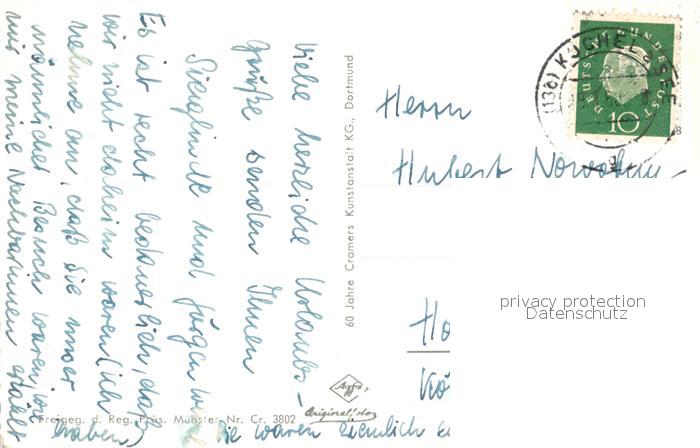 Liebe herzliche Urlaubs-
grüße senden Ihnen
Sieglinde und Jürgen
Es ist recht bedauerlich, daß
wir nicht daheim waren (ich
nehme an, daß Sie unser
männlicher Besuch waren, wie
mir meine Nachbarinnen erzählt
haben) Sie waren ziemlich
60 Jahre Cramers Kunstanstalt KG., Dortmund
Freigeg. d. Reg. Präs. Münster Nr. Cr. 3802
Agfa
Original-Foto
Herrn
Hubert
Ho
Kö
DEUTSCHE BUNDESPOST
10
(13b) KOCHEL
privacy protection
Datenschutz